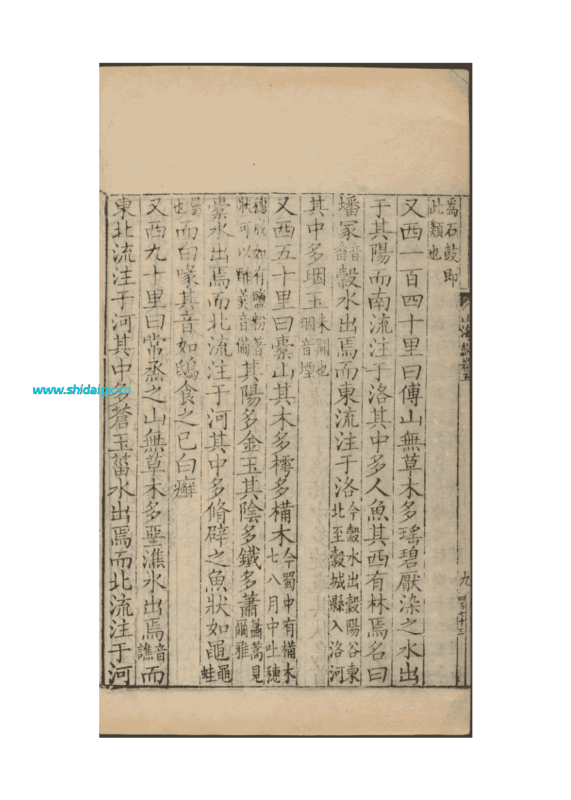 爲石鼓即
此類也
山海經卷五
九
又西一百四十里曰傅山無草木多瑤碧厭染之水出
于其陽而南流注于洛其中多人魚其西有林焉名曰
墦冢音番縠水出焉而東流注于洛今縠水出縠陽谷東北至縠城縣入洛河
其中多珚玉未聞也珚音堙
又西五十里曰橐山其木多樗多㯕木今蜀中有㯕木七八月中吐穗
穗成如有鹽粉著狀可以酢羹音備其陽多金玉其陰多鐵多蕭蕭蒿見爾雅
橐水出焉而北流注于河其中多脩辟之魚狀如黽黽蛙
屬也而白喙其音如鴟食之已白癬
又西九十里曰常烝之山無草木多堊潐水出焉音譙而
東北流注于河其中多蒼玉菑水出焉而北流注于河
www.shidaigx.cn